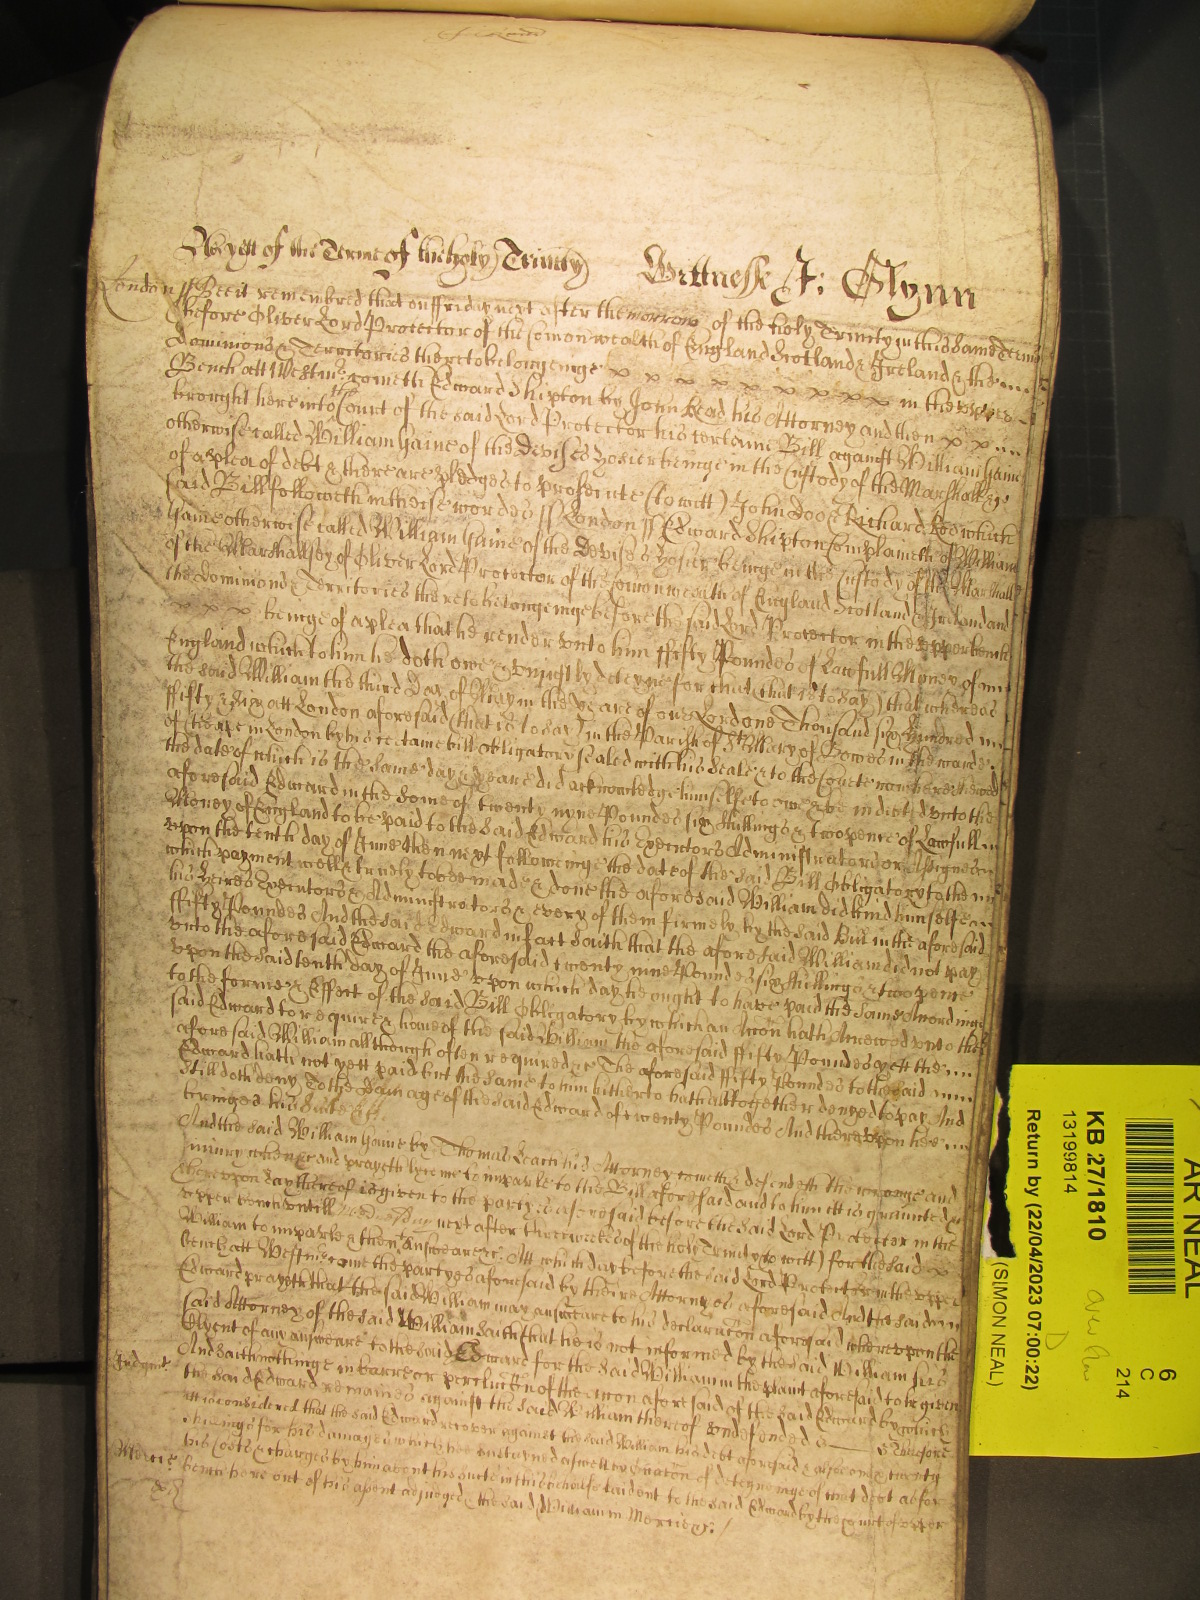 As yett of the Terme of the holy Trinity Wittnesse J: Glynn
London ss Bee it remembred that on ffriday next after the morrow of the holy Trinity in this same Terme
before Oliver Lord Protector of the Comonwealth of England Scotland & Ireland & the
Dominions & Territories thereto belonginge x x x x x x x x x x in the upper
Bench att Westmr: cometh Edward Shipton by John Read his Attorney and then x x
brought here into the Court of the said Lord Protector his certaine Bill against William Gaine
otherwise called William Gaine of the Devises hosier beinge in the Custody of the Marshall &c
of a plea of debt & there are pledges to prosecute (to witt) John Doo & Richard Roo which
said Bill followeth in these wordes ss London ss Edward Shipton Complaineth of William
Gaine otherwise called William Gaine of the Devises hosier beinge in the Custody of the Marshall
of the Marshallsey of Oliver Lord Protector of the Comonwealth of England Scotland & Ireland and
the dominions & Territories thereto belonginge before the said Lord Protector in the upper bench
x x x beinge of a plea that he render unto him ffifty Poundes of Lawfull Money of
England which to him he doth owe & uniustly deteyne for that (that is to say) that whereas
the said William the third Day of May in the yeare of our Lord one Thousand six hundred
ffifty & six att London aforesaid (that is to say) in the Parish of St Mary of Bowes in the warde
of Cheape in London by his certaine bill obligatory sealed with his Seale & to the Courte now here shewed
the date of which is the same day & yeare did acknowledge himselfe to owe & be indebted unto the
aforesaid Edward in the Some of twenty nyne Poundes six shillings & twoo pence of Lawfull
Money of England to be paid to the said Edward his Executors Administrators or Assignes
upon the tenth day of June then next followeinge the date of the said Bill Obligatory to the
which payment well & truely to bee made & done the aforesaid William did bind himselfe
his heires Executors & Administrators & every of them firmely by the said Bill in the aforesaid
ffifty Poundes And the said Edward in fact saith that the aforesaid William did not pay
unto the aforesaid Edward the aforesaid twenty nyne Poundes six shillings & twoo pence
upon the said tenth day of June upon which day he ought to have paid the same Accordinge
to the forme & Effect of the said Bill Obligatory by which an Accon hath Accrewed unto the
said Edward to require & have of the said William the aforesaid ffifty Poundes yett the
aforesaid William allthough often required &c The aforesaid ffifty Poundes to the said
Edward hath not yett paid but the same to him hitherto hath alltogether denyed to pay And
still doth deny To the Damage of the said Edward of twenty Poundes And thereupon here
bringes his Suite &c
And the said William Gaine by Thomas Leach his Attorney cometh & defendeth the wronge and
iniury when &c and prayeth lycence to imparle to the Bill aforesaid and to him itt is graunted &c
thereupon day thereof is given to the partyes aforesaid before the said Lord Protector in the
upper bench untill next after three weekes of the holy Trinity (to witt) for the said
William to imparle & then to answeare &c. Att which day before the said Lord Protector in the upper
bench att Westmr: come the partyes aforesaid by theire Attorneyes aforesaid And the said
Edward prayeth that the said William may answeare to his declaracon aforesaid whereupon the
said Attorney of the said William saith that he is not informed by the said William his
Clyent of any answeare to the said Edward for the said William in the plaint aforesaid to be given
And saith nothinge in barre or perclusion of the accon aforesaid of the said Edward by which
the said Edward remaines against the said William thereof undefended &c Therefore
Iudgmt: itt is considered that the said Edward recover against the said William his debt aforesaid & alsoe one & twenty
shillings for his damages which hee sustayned aswell by occacon of deteyneinge of that debt as for
his Costs & charges by him about his suite in this behalfe laid out to the said Edward by the court of upper
Mercie bench here out of his assent adiudged & the said William in Mercie &c: /
AR NEAL
6
C
214
KB 27/1810
13199814
Return by (22/04/2023 07:00:22)
(SIMON NEAL)